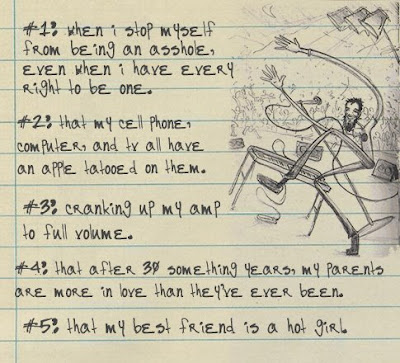 #1: when i stop myself
from being an asshole,
even when i have every
right to be one.
#2: that my cell phone,
computer, and tv all have
an apple tatooed on them.
#3: cranking up my amp
to full volume.
#4: that after 30 something years, my parents
are more in love than they've ever been.
#5: that my best friend is a hot girl.